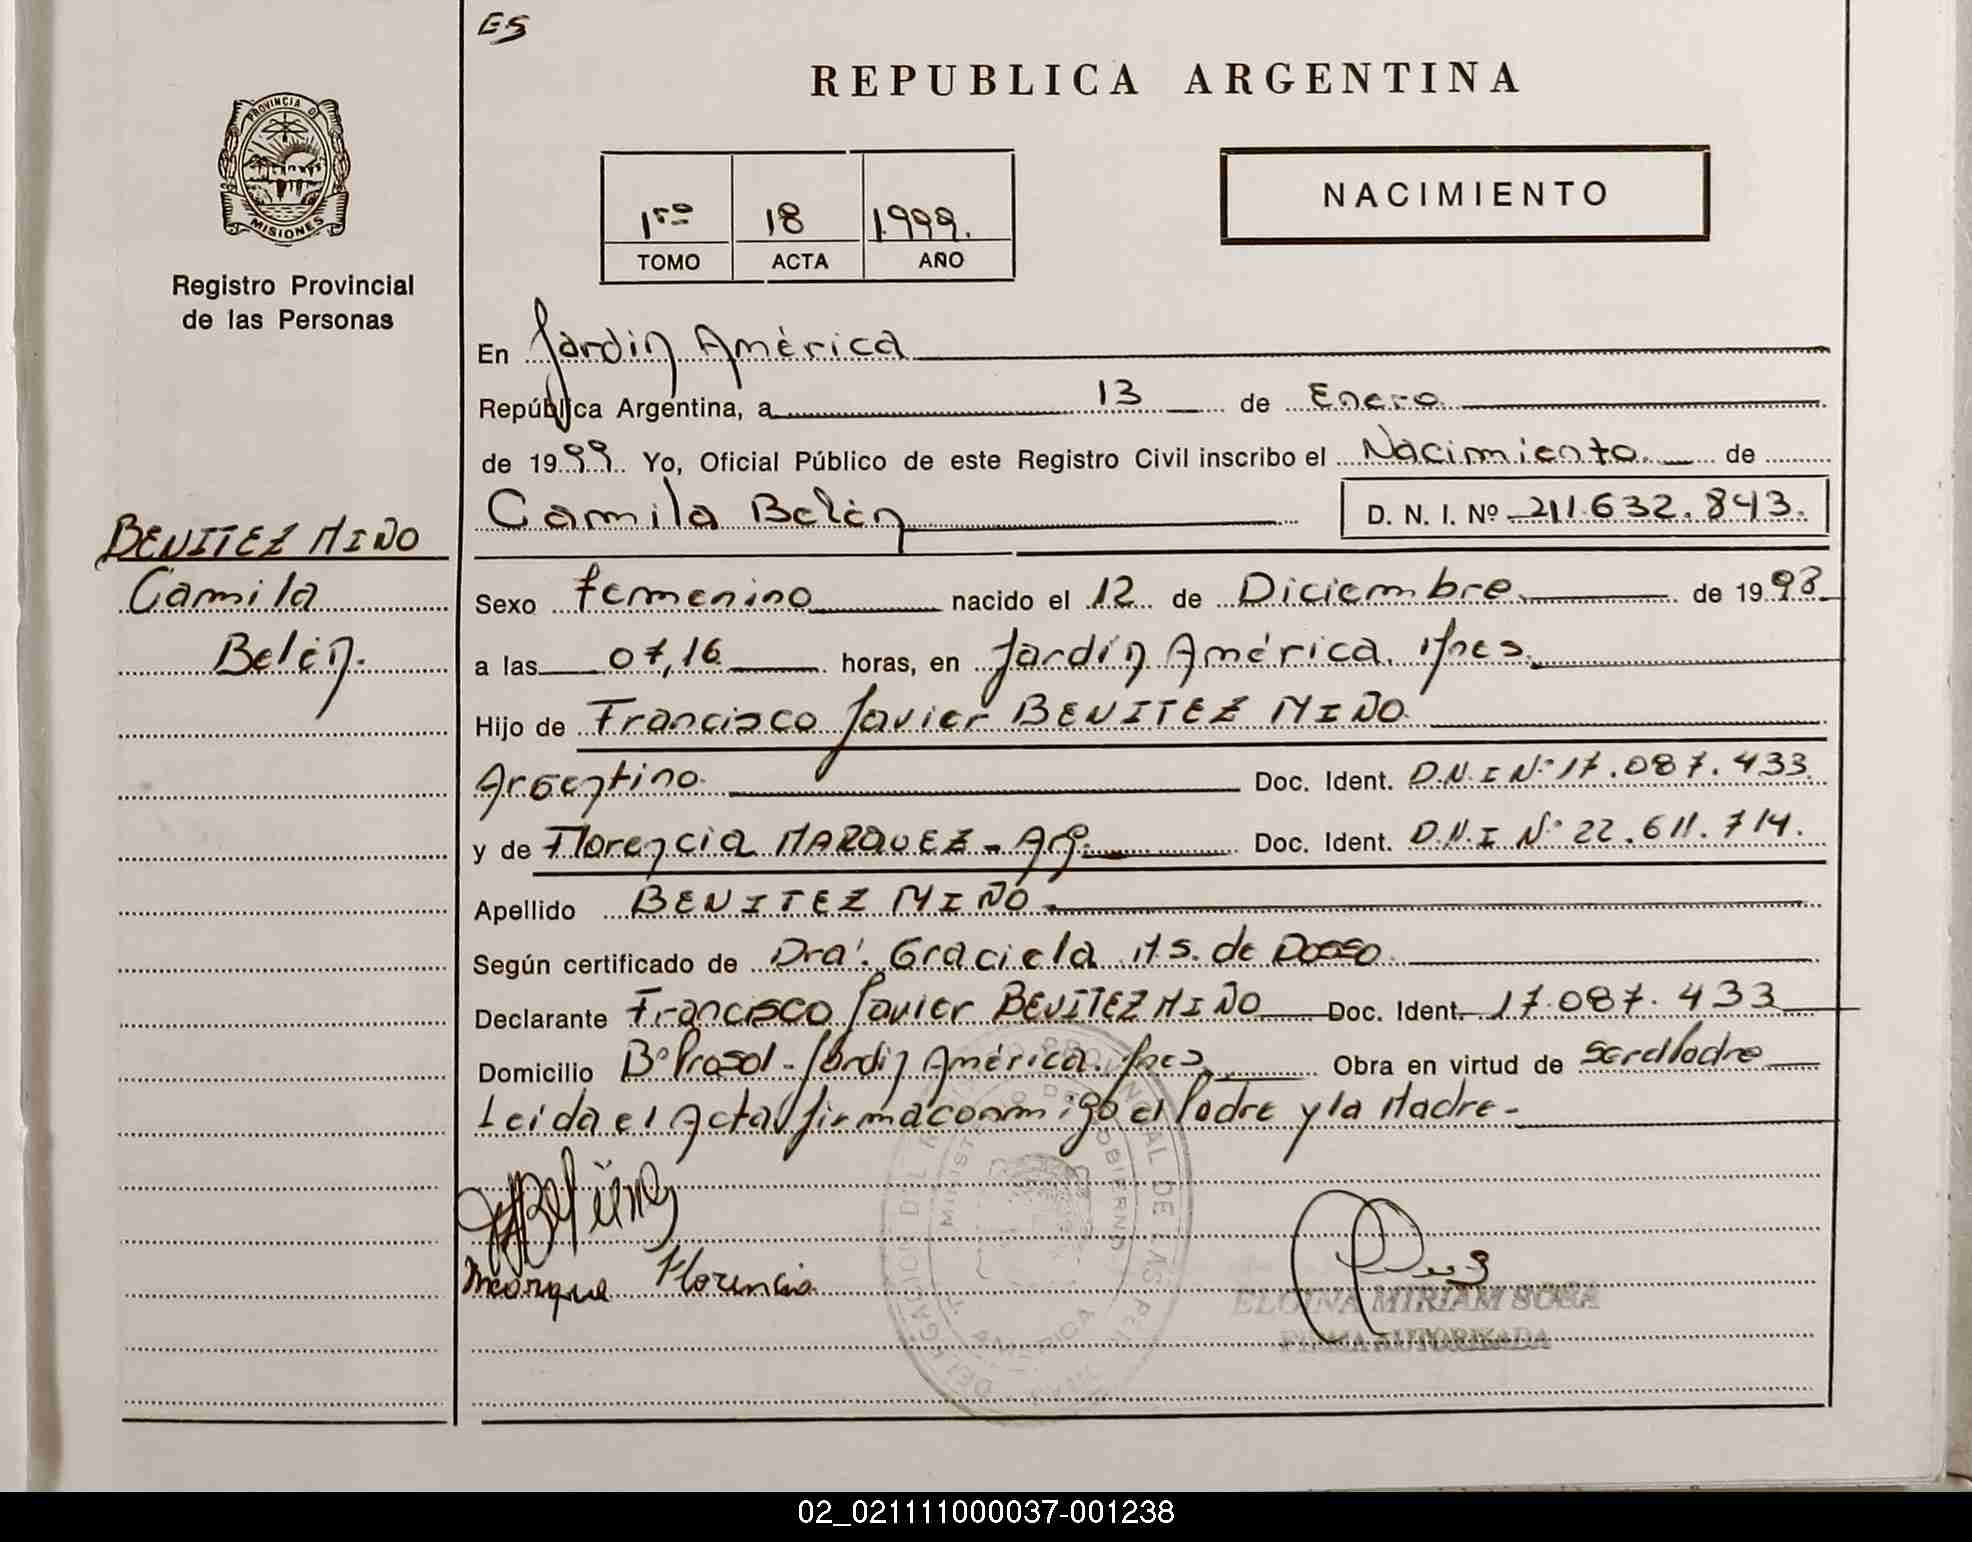 ES
REPUBLICA ARGENTINA
PROVINCIA D
MISIONES
Registro Provincial
de las Personas
1ro 18 1.999.
TOMO ACTA AÑO
NACIMIENTO
En Jardín América
República Argentina, a 13 de Enero
de 1999. Yo, Oficial Público de este Registro Civil inscribo el Nacimiento de
Camila Belén D. N. I. Nº 211.632.843.
BENITEZ MIÑO
Camila
Belén.
Sexo femenino nacido el 12 de Diciembre de 1998
a las 07,16 horas, en Jardín América. Mnes.
Hijo de Francisco Javier BENITEZ MIÑO
Argentino. Doc. Ident. D.N.I Nº 17.087.433
y de Florencia MARQUEZ - Arg. Doc. Ident. D.N.I Nº 22.611.714.
Apellido BENITEZ MIÑO
Según certificado de Dra. Graciela M S. de
Declarante Francisco Javier BENITEZ MIÑO Doc. Ident. 17.087.433
Domicilio Bº Prosol - Jardín América. Mnes Obra en virtud de ser el Padre
Leída el Acta firma conmigo el Padre y la Madre -
Florencia
ELOINA MIRIAM SOSA
FIRMA AUTORIZADA
02_021111000037-001238